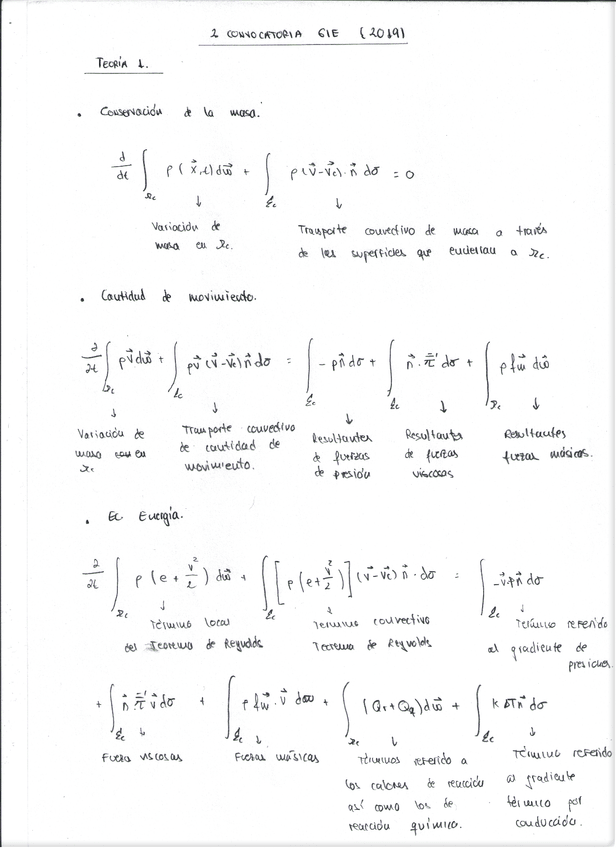 2 CONVOCATORIA GIE (2019)
TEORÍA 1.
• Conservación de la masa.
d/dt ∫_Ωc ρ(x⃗,t) dω⃗ + ∫_Σc ρ(v⃗-v⃗c)·n⃗ dσ = 0
↓ ↓
Variación de masa en Ωc.
Transporte convectivo de masa a través
de las superficies que encierran a Ωc.
• Cantidad de movimiento.
∂/∂t ∫_Ωc ρv⃗dω⃗ + ∫_Σc ρv⃗(v⃗-v⃗c)n⃗dσ = ∫_Σc -pn⃗dσ + ∫_Σc n⃗·τ̿'dσ + ∫_Ωc ρf⃗m dω⃗
↓ ↓ ↓ ↓ ↓
Variación de
masa en
Ωc
Transporte convectivo
de cantidad de
movimiento.
Resultantes
de fuerzas
de presión
Resultantes
de fuerzas
viscosas
Resultantes
fuerzas másicas.
• Ec Energía.
∂/∂t ∫_Ωc ρ(e + v²/2) dω⃗ + ∫_Σc [ρ(e + v²/2)](v⃗-v⃗c) n⃗·dσ = ∫_Σc -v⃗·pn⃗dσ
↓ ↓ ↓
Término local
del Teorema de Reynolds
Término convectivo
Teorema de Reynolds.
Término referido
al gradiente de
presiones.
+ ∫_Σc n⃗ τ̿' v⃗ dσ + ∫_Σc ρf⃗m·v⃗ dω + ∫_Ωc (Qr+Qq)dω⃗ + ∫_Σc K ΔT n⃗ dσ
↓ ↓ ↓ ↓
Fuerza viscosas
Fuerzas másicas
Términos referido a
los calores de reacción
así como los de
reacción química.
Término referido
al gradiente
térmico por
conducción.